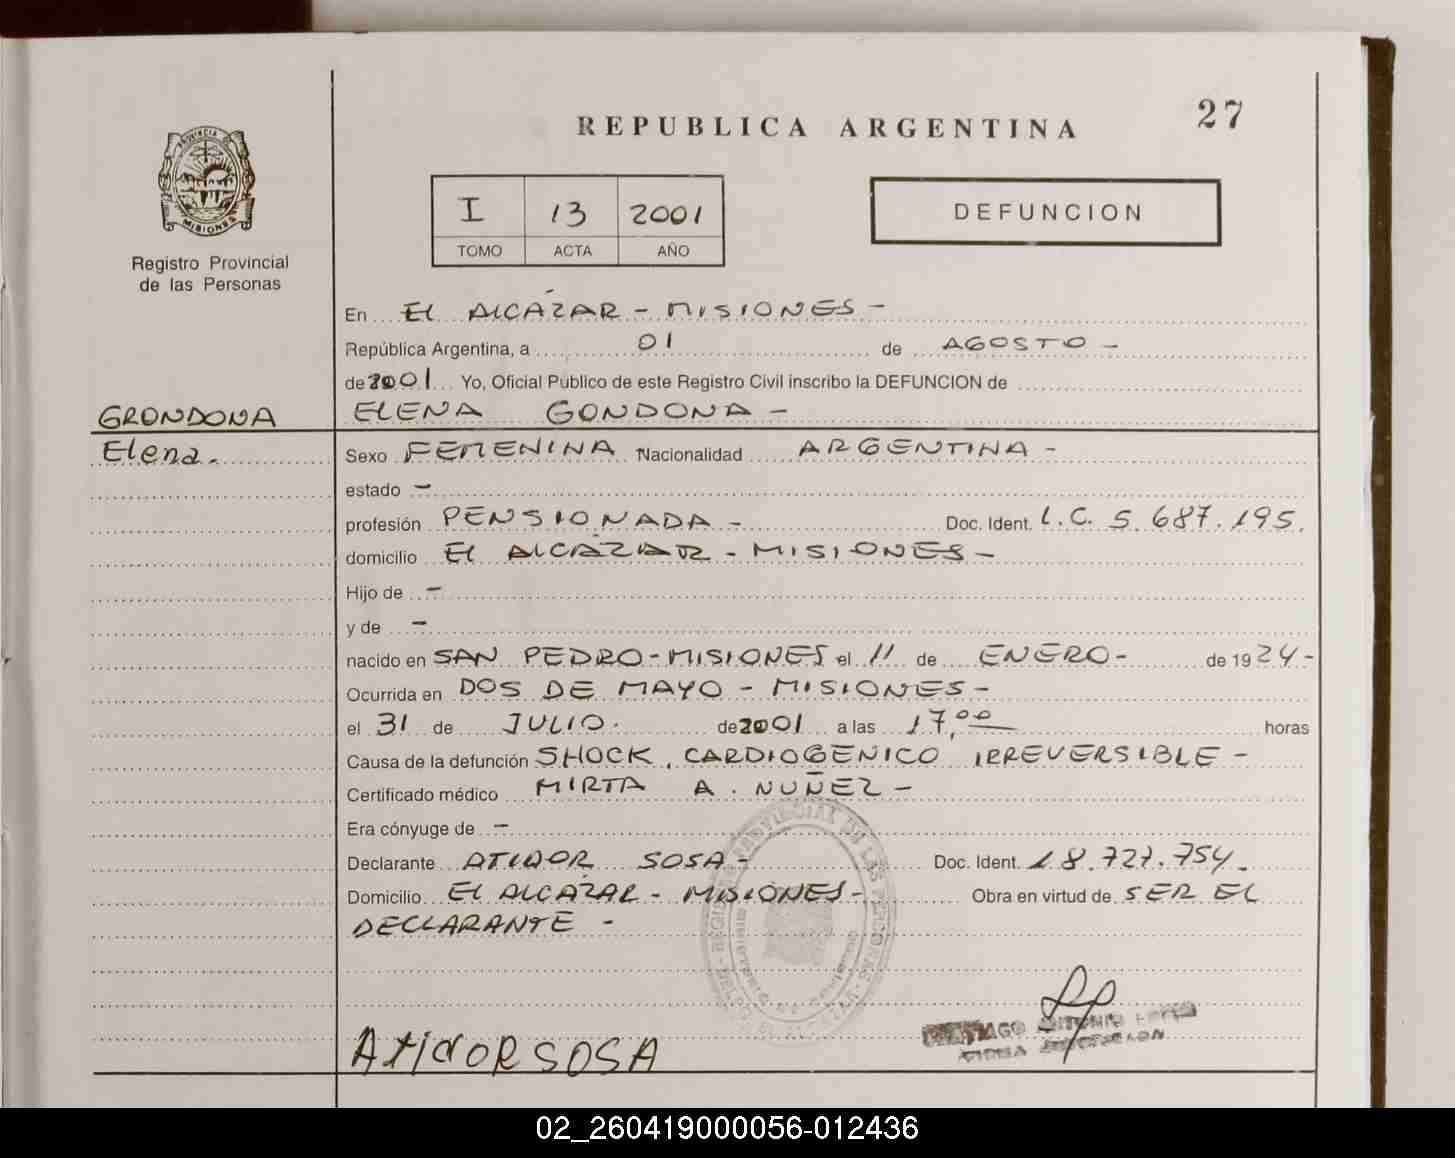 27
REPUBLICA ARGENTINA
PROVINCIA DE
MISIONES
Registro Provincial
de las Personas
I 13 2001
TOMO ACTA AÑO
DEFUNCION
En El ALCÁZAR - MISIONES -
República Argentina, a 01 de AGOSTO -
de 2001 Yo, Oficial Publico de este Registro Civil inscribo la DEFUNCION de
GRONDONA
Elena.
ELENA GONDONA -
Sexo FEMENINA Nacionalidad ARGENTINA -
estado -
profesión PENSIONADA - Doc. Ident. L.C. 5.687.195.
domicilio El ALCÁZAR - MISIONES -
Hijo de -
y de -
nacido en SAN PEDRO - MISIONES el 11 de ENERO - de 1924 -
Ocurrida en DOS DE MAYO - MISIONES -
el 31 de JULIO. de 2001 a las 17,00 horas
Causa de la defunción SHOCK CARDIOGENICO IRREVERSIBLE -
Certificado médico MIRTA A. NUÑEZ -
Era cónyuge de -
Declarante ATIDOR SOSA - Doc. Ident. 18.727.754.
Domicilio El ALCÁZAR - MISIONES - Obra en virtud de SER EL
DECLARANTE -
ATIDOR SOSA
ANTONIO
02_260419000056-012436